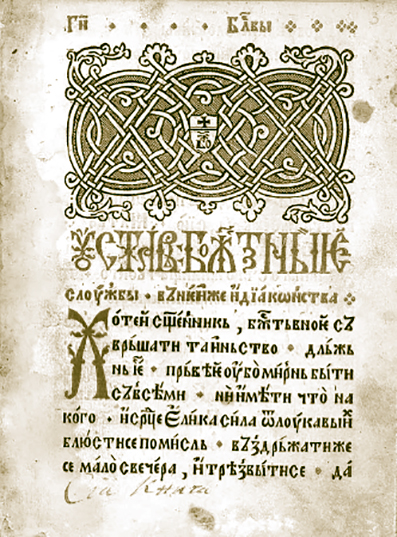 Ги҃ Бл҃вы
Оуставь бжⷭтвныѥ
слоужбы • въ нѥи же и дїакѡньства
Хотеи сщ҃енникь , бжⷭтьвноѥ съ
врьшати таиньство • дльжь
нь ѥⷭ • прьвѣѥ оубо мирнь быти
съ всѣми • ни имѣти что на
кого • и срⷣце елика сила ѿ лоукавыⷯ
блюсти се помисль • въздрьжати же
се мало с вечера , и трѣзвити се • да
Сіѧ Книга